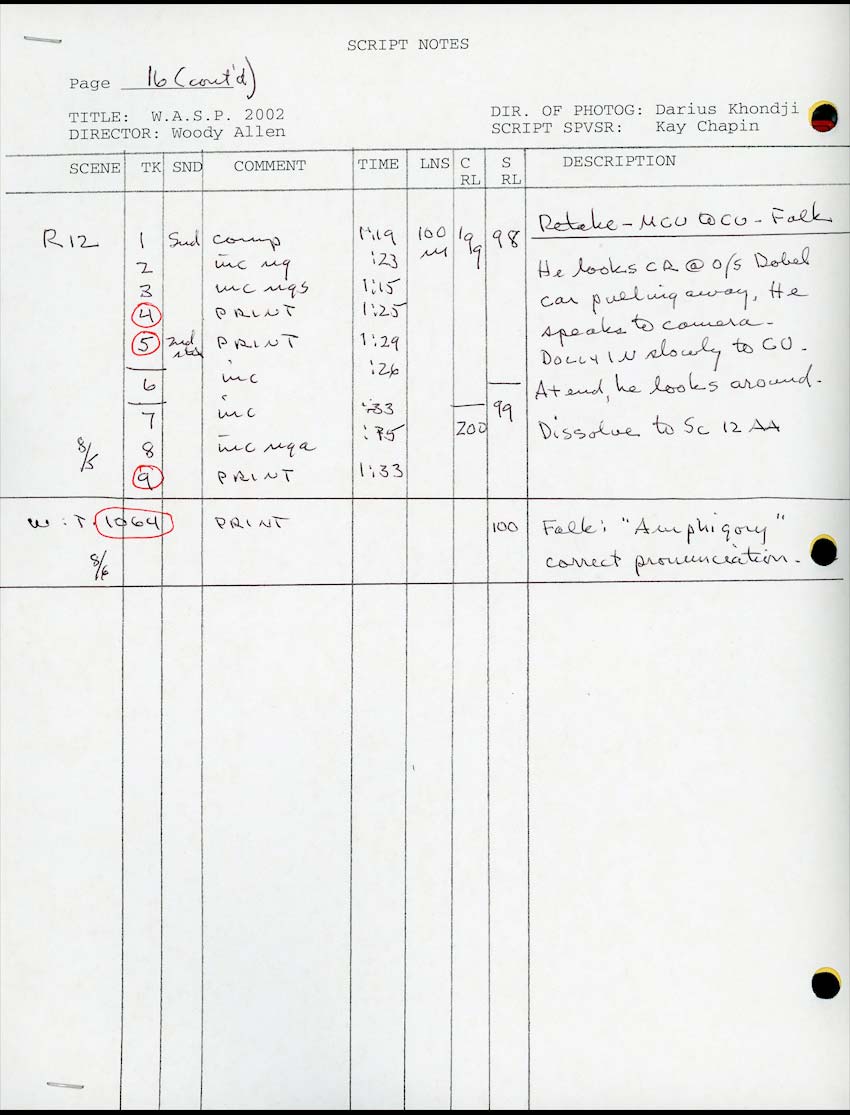 SCRIPT NOTES
Page 16 (cont'd)
TITLE: W.A.S.P. 2002 DIR. OF PHOTOG: Darius Khondji
DIRECTOR: Woody Allen SCRIPT SPVSR: Kay Chapin
SCENE TK SND COMMENT TIME LNS C RL S RL DESCRIPTION
Retake - MCU to CU - Falk
R12 1 Snd comp 1:19 100 199 98
2 inc ng :23 He looks CR @ O/S Dobel
3 inc ngs 1:15 car pulling away, He
4 PRINT 1:25 speaks to camera -
5 PRINT 1:29 DOLLY IN slowly to CU -
6 inc :26 At end, he looks around.
7 inc :33 99
200 Dissolve to Sc 12 AA
8/5 8 inc nga
9 PRINT 1:33
W.T. 1064 PRINT 100 Falk: "Amphigory"
8/6 correct pronunciation.